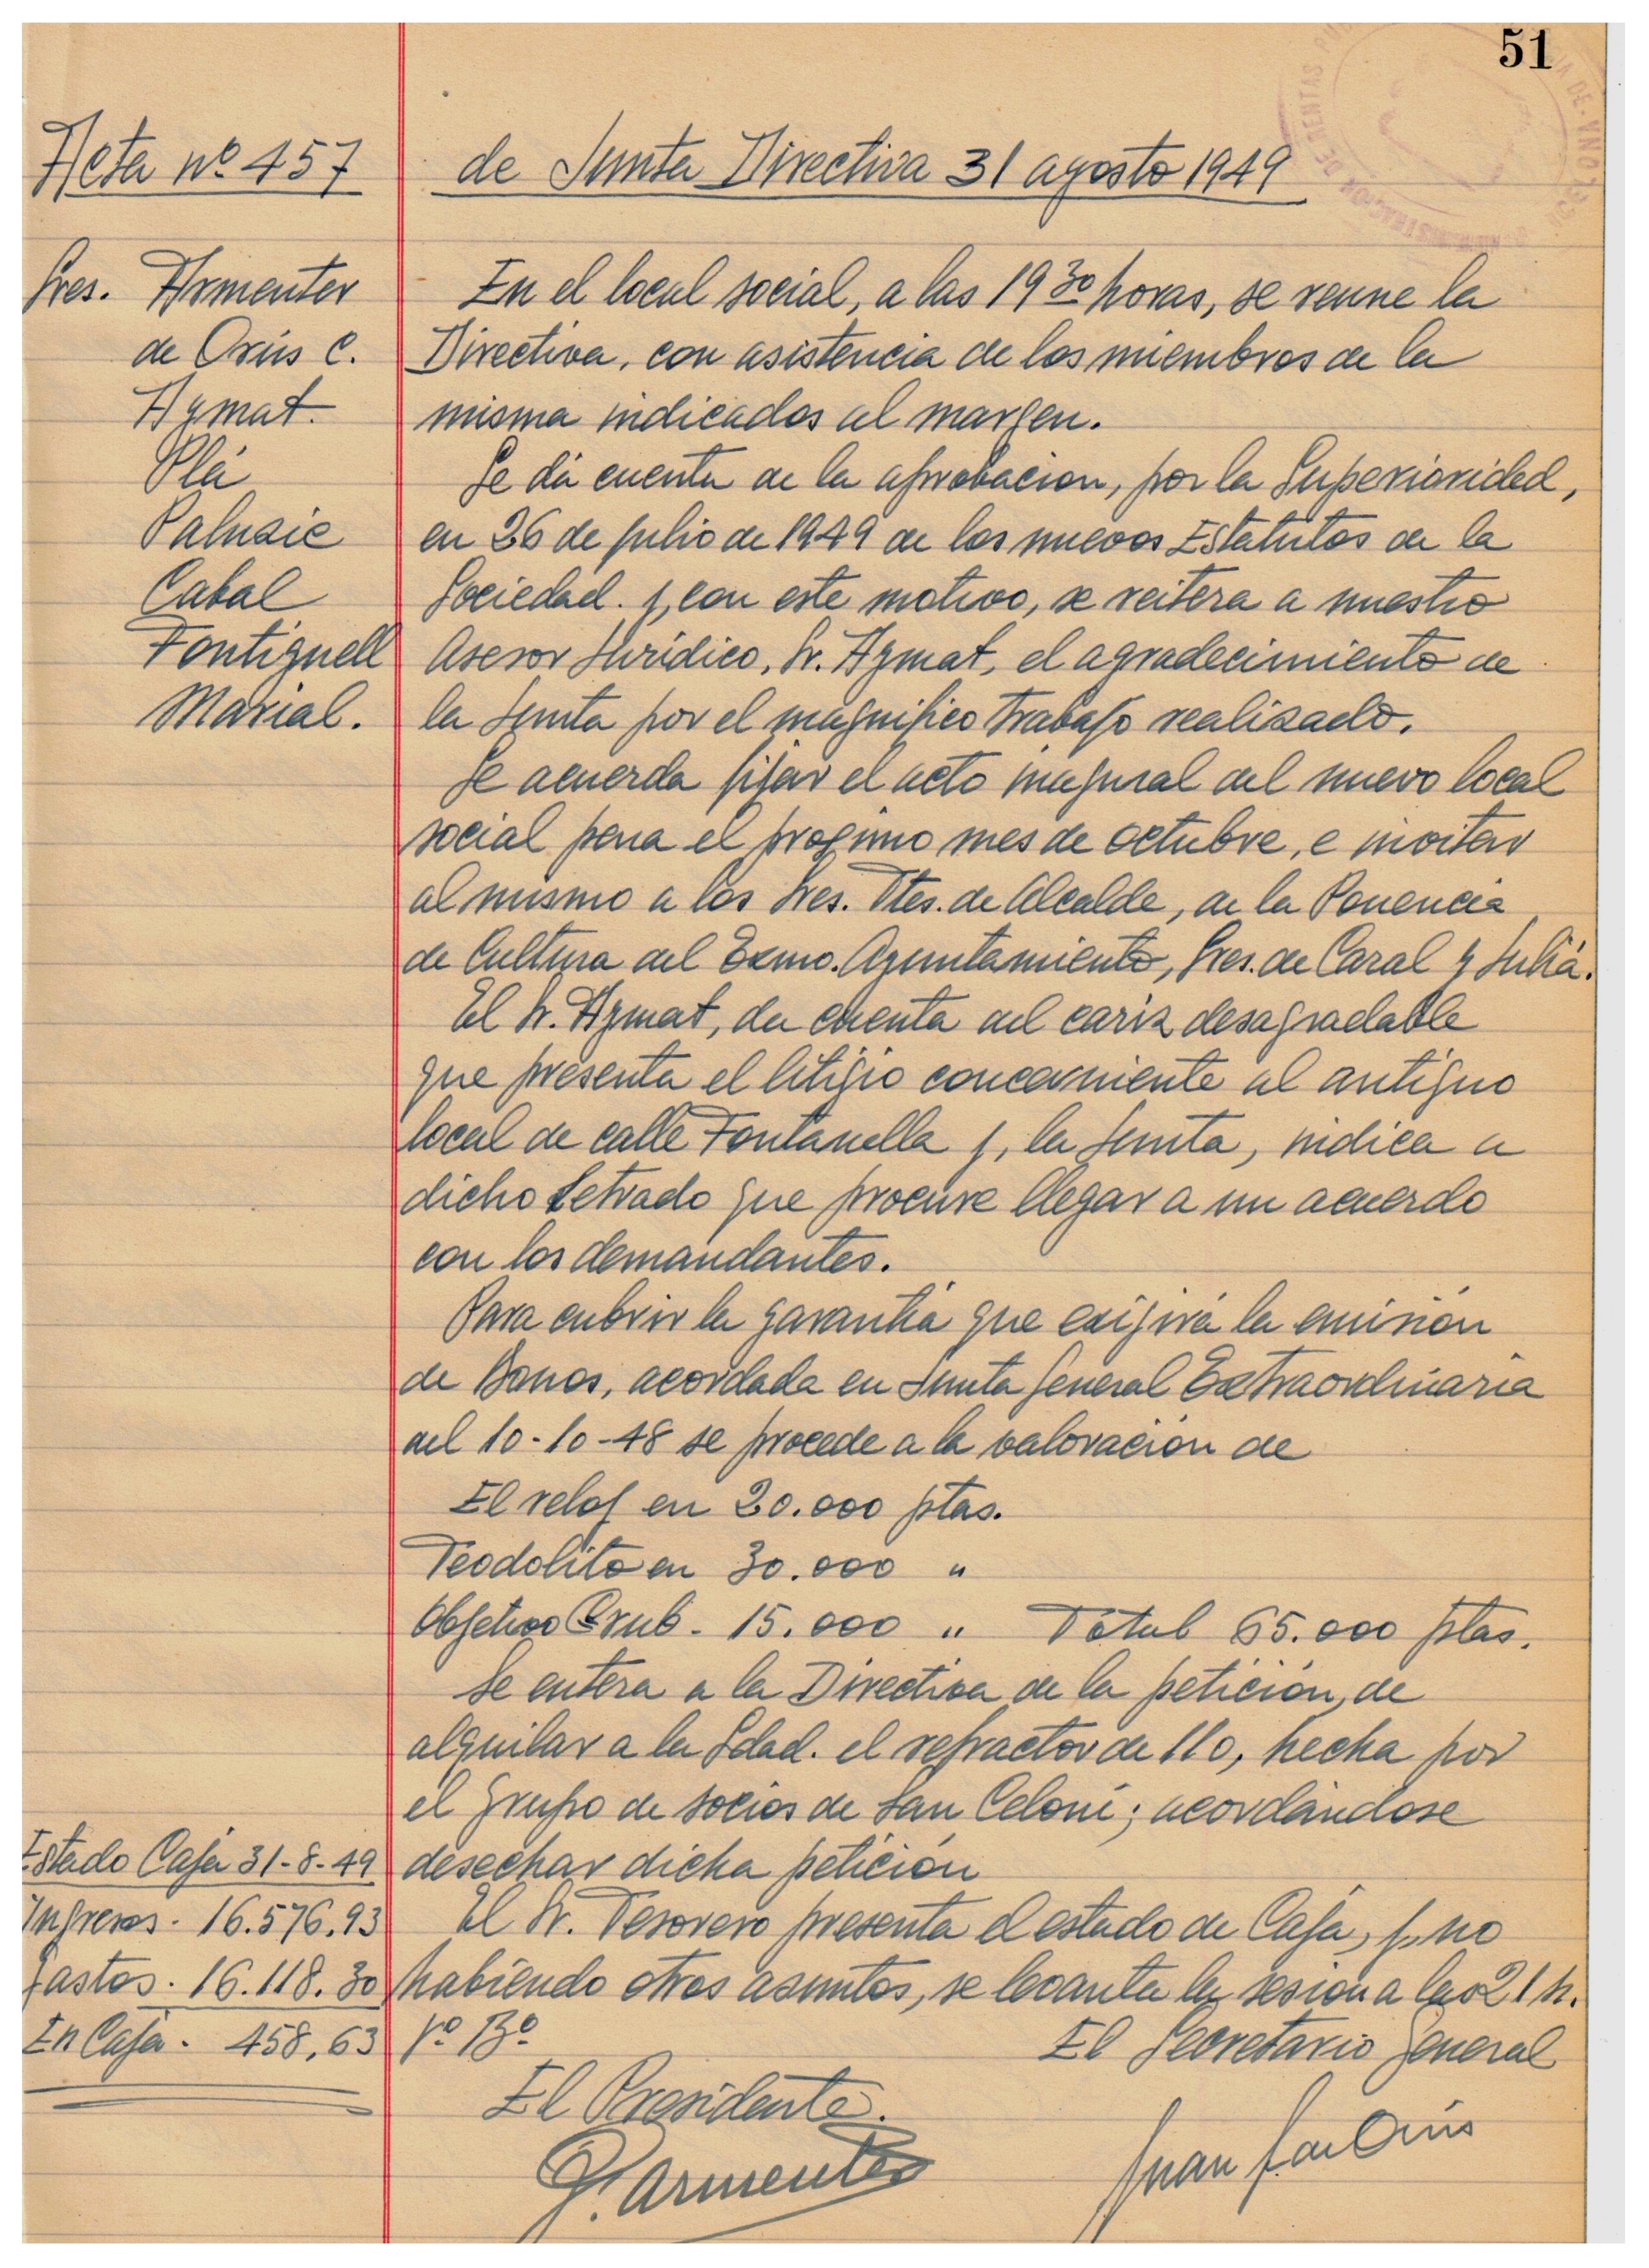 51
Acta nº 457
de Junta Directiva 31 agosto 1949
Sres. Armenter
de Orús C.
Aymat.
Plá
Palusie
Cabal
Fontignell
Marial.
En el local social, a las 19 30 horas, se reune la
Directiva, con asistencia de los miembros de la
misma indicados al margen.
Se dá cuenta de la aprobacion, por la Superioridad,
en 26 de julio de 1949 de los nuevos Estatutos de la
Sociedad. y, con este motivo, se reitera a nuestro
Asesor Juridico, Sr. Aymat, el agradecimiento de
la Junta por el magnifico trabajo realizado.
Se acuerda fijar el acto inagural del nuevo local
social para el proximo mes de octubre, e invitar
al mismo a los Sres. Ttes. de Alcalde, de la Ponencia
de Cultura del Exmo. Ayuntamiento, Sres. de Caral y Juliá.
El Sr. Aymat, da cuenta del cariz desagradable
que presenta el litigio concerniente al antiguo
local de calle Fontanella y, la Junta, indica a
dicho Letrado que procure llegar a un acuerdo
con los demandantes.
Para cubrir la garantia que exigirá la emision
de Bonos, acordada en Junta General Extraordinaria
del 10-10-48 se procede a la valoración de
El reloj en 20.000 ptas.
Teodolito en 30.000 "
Objetivo Grub. 15.000 " Total 65.000 ptas.
Se entera a la Directiva de la petición, de
alquilar a la Sdad. el refractor de 110, hecha por
el grupo de socios de San Celoni; acordándose
desechar dicha peticion
El Sr. Tesorero presenta el estado de Caja, y, no
habiendo otros asuntos, se levanta la sesion a las 21 h.
Estado Caja 31-8-49
Ingresos. 16.576,93
Gastos. 16.118.30
En Caja. 458,63
Vº Bº
El Secretario General
El Presidente.
P. Armenter